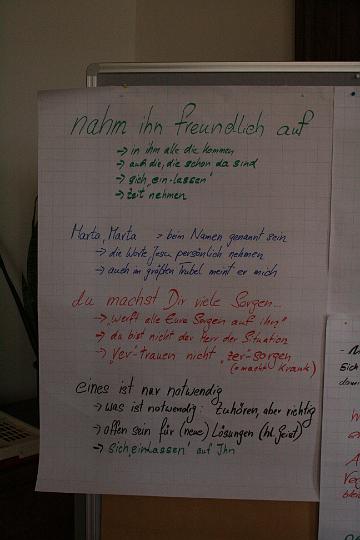 nahm ihn freundlich auf
→ in ihm alle die kommen
→ auch die, die schon da sind
→ sich "ein-lassen"
→ Zeit nehmen
Marta, Marta → beim Namen genannt sein
→ die Worte Jesu persönlich nehmen
→ auch im größten Trubel meint er mich
du machst Dir viele Sorgen...
→ "werft alle Eure Sorgen auf ihn"
→ du bist nicht der Herr der Situation
→ "Ver-trauen nicht "zer-sorgen
(macht Krank)
eines ist nur notwendig
→ was ist notwendig: Zuhören, aber richtig
→ offen sein für (neue) Lösungen (hl. Geist)
→ Sich "einlassen" auf Ihn
Sich